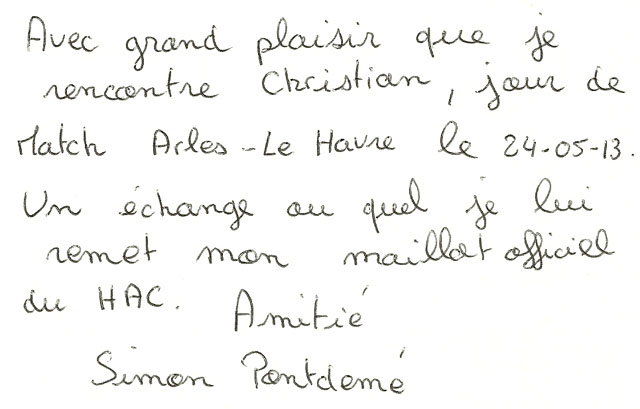 Avec grand plaisir que je
rencontre Christian, jour de
Match Arles-Le Havre le 24-05-13.
Un échange au quel je lui
remet mon maillot officiel
du HAC. Amitié
Simon Pontdemé